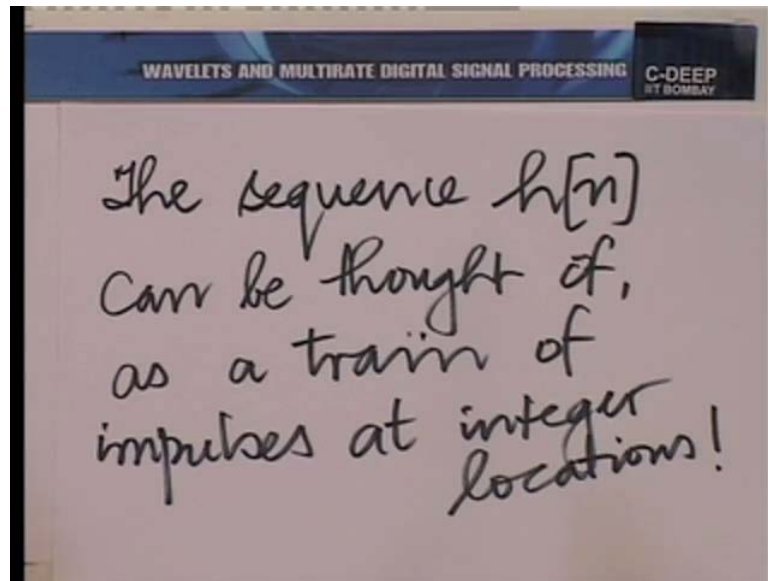 WAVELETS AND MULTIRATE DIGITAL SIGNAL PROCESSING
C-DEEP
IIT BOMBAY
The sequence h[n]
can be thought of,
as a train of
impulses at integer
locations!